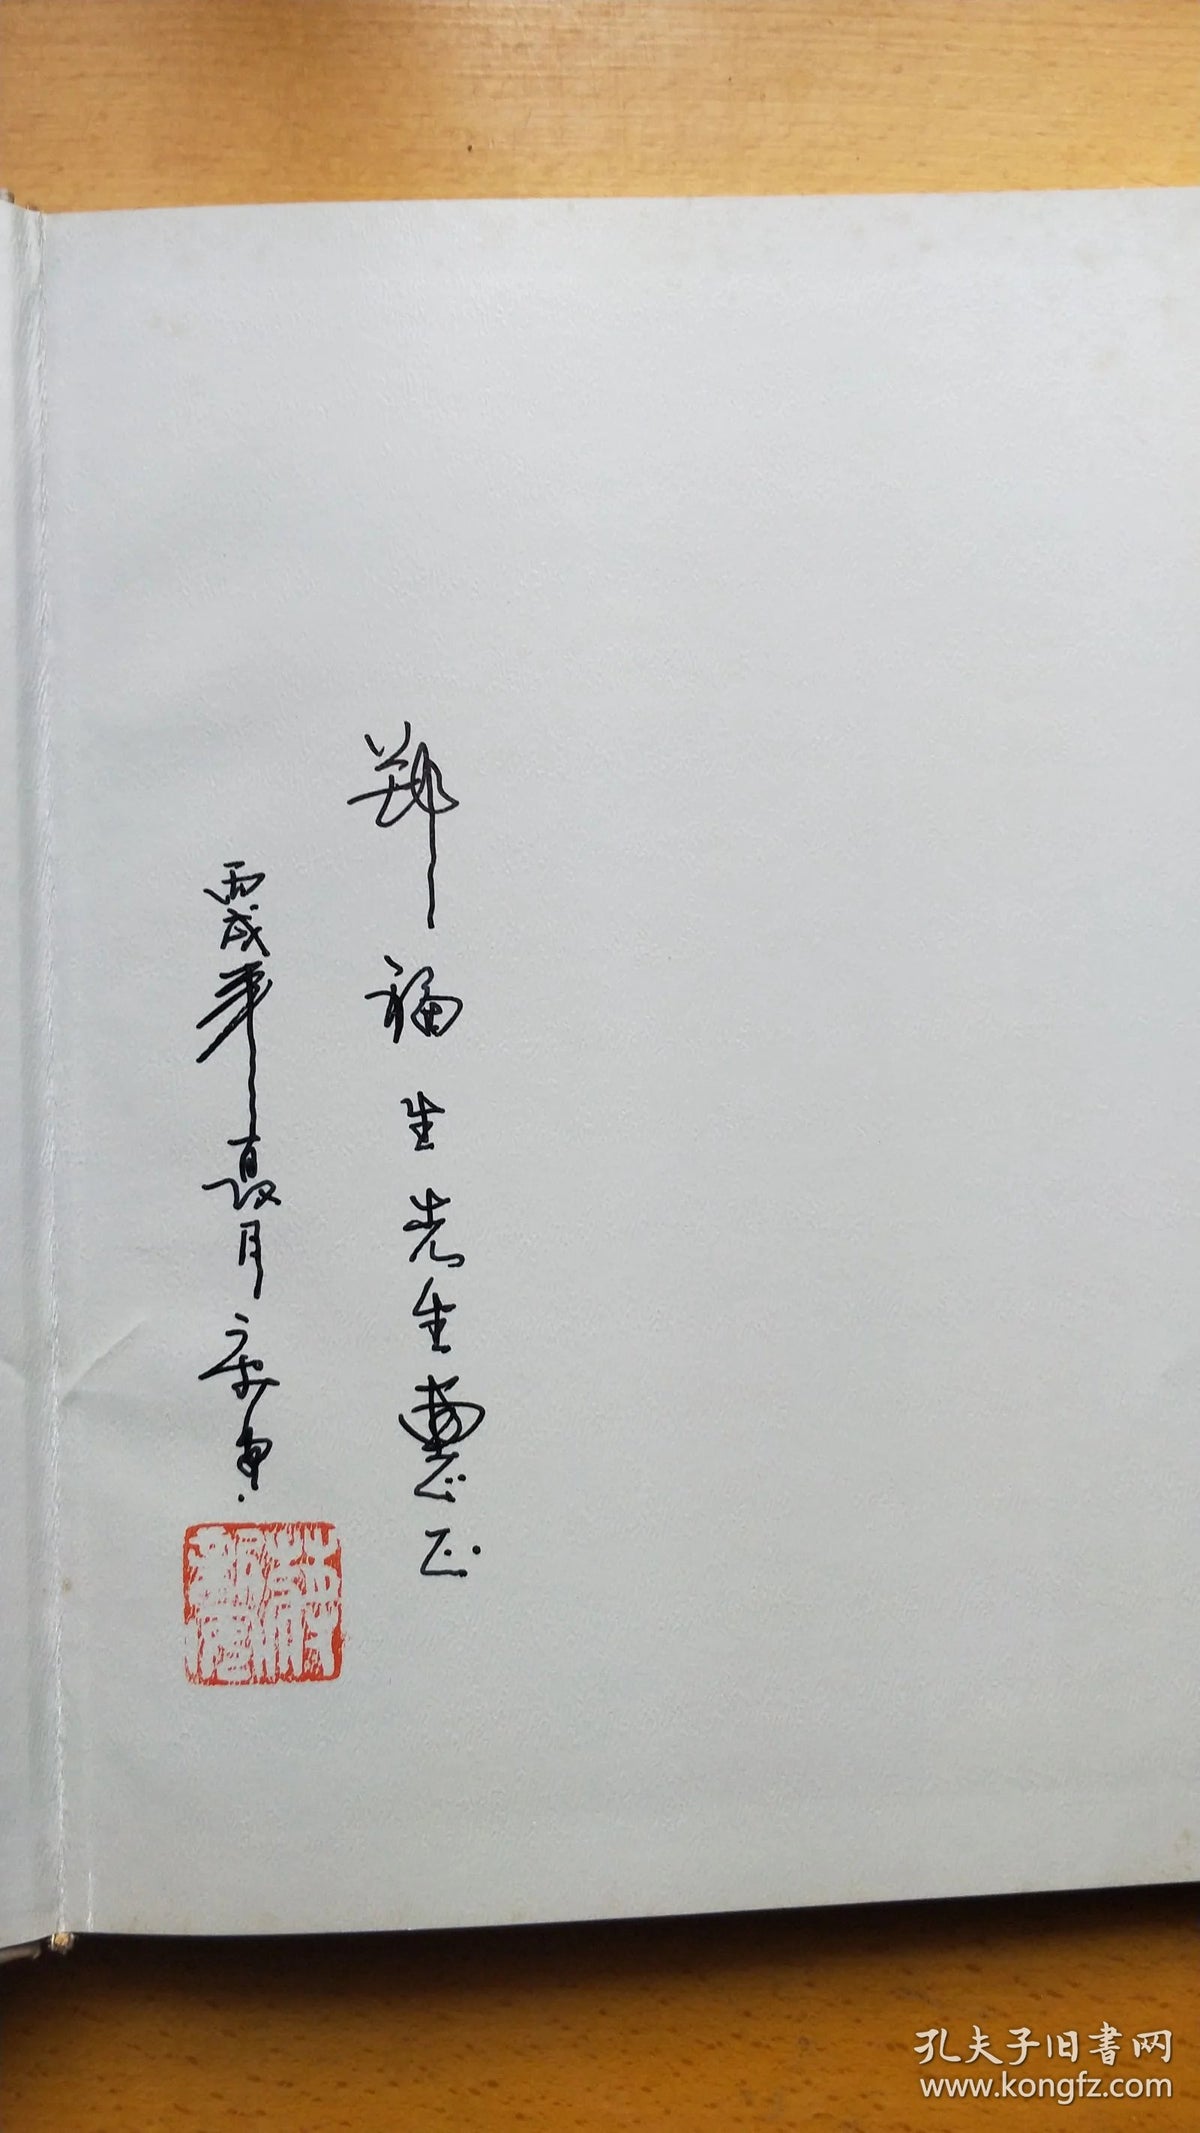 郑福生先生惠正
丙戌年夏月
孔夫子旧書网
www.kongfz.com